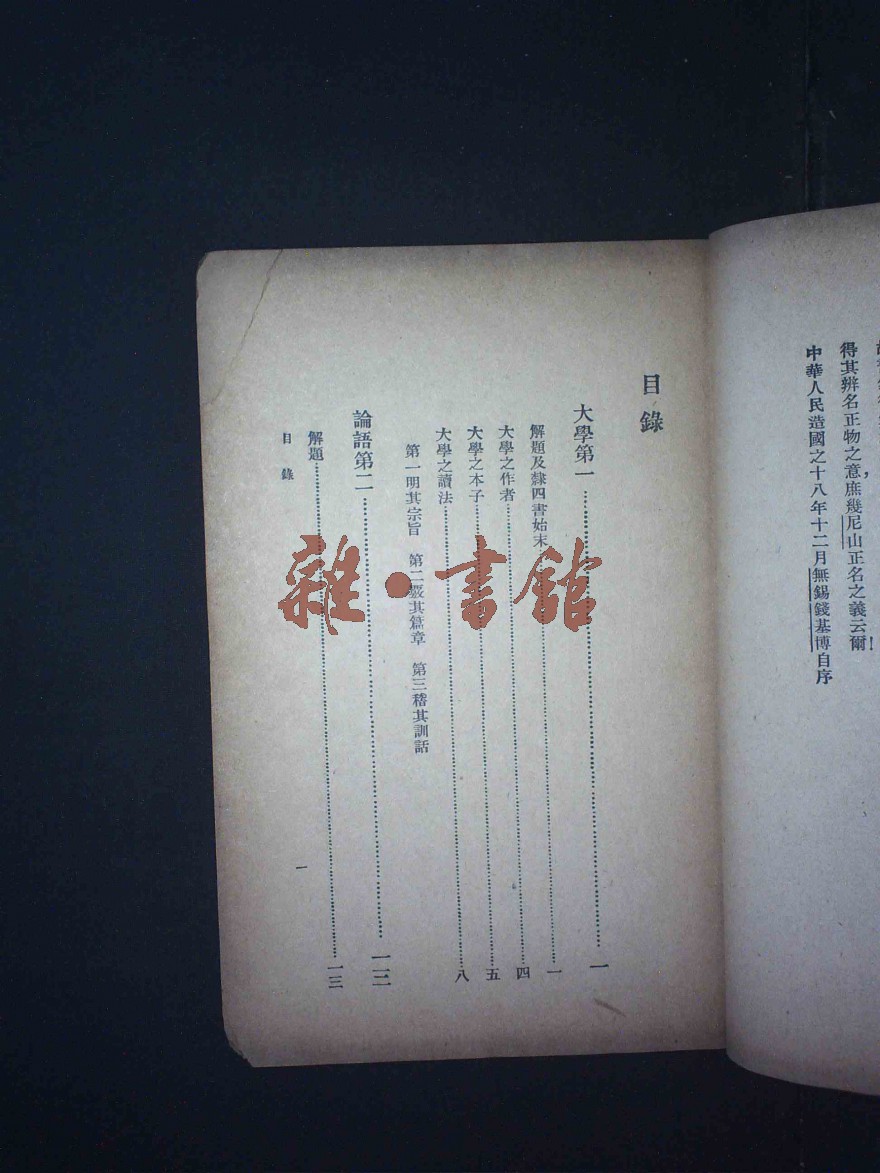 得其辨名正物之意，庶幾尼山正名之義云爾！
中華人民造國之十八年十二月無錫錢基博自序
目錄
大學第一……一
解題及隸四書始末……一
大學之作者……四
大學之本子……五
大學之讀法……八
第一明其宗旨　第二覈其篇章　第三稽其訓詁
論語第二……一三
解題……一三
目錄
一
雜·書館